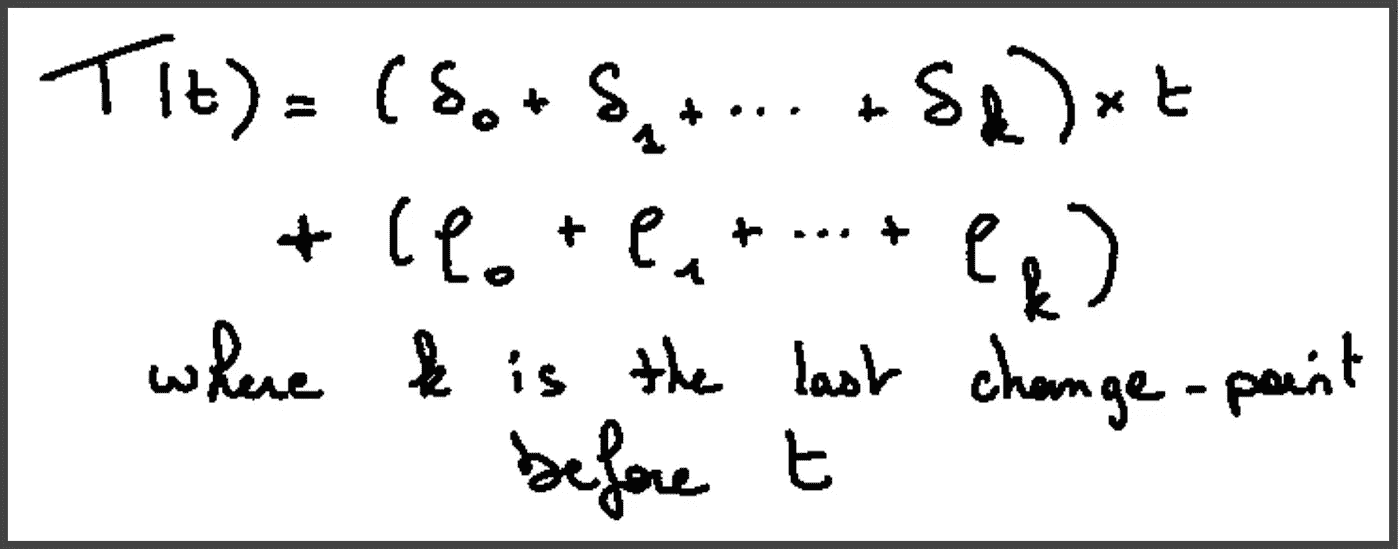 T(t) = (δ₀ + δ₁ + ... + δₖ) × t
+ (ρ₀ + ρ₁ + ... + ρₖ)
where k is the last change-point
before t